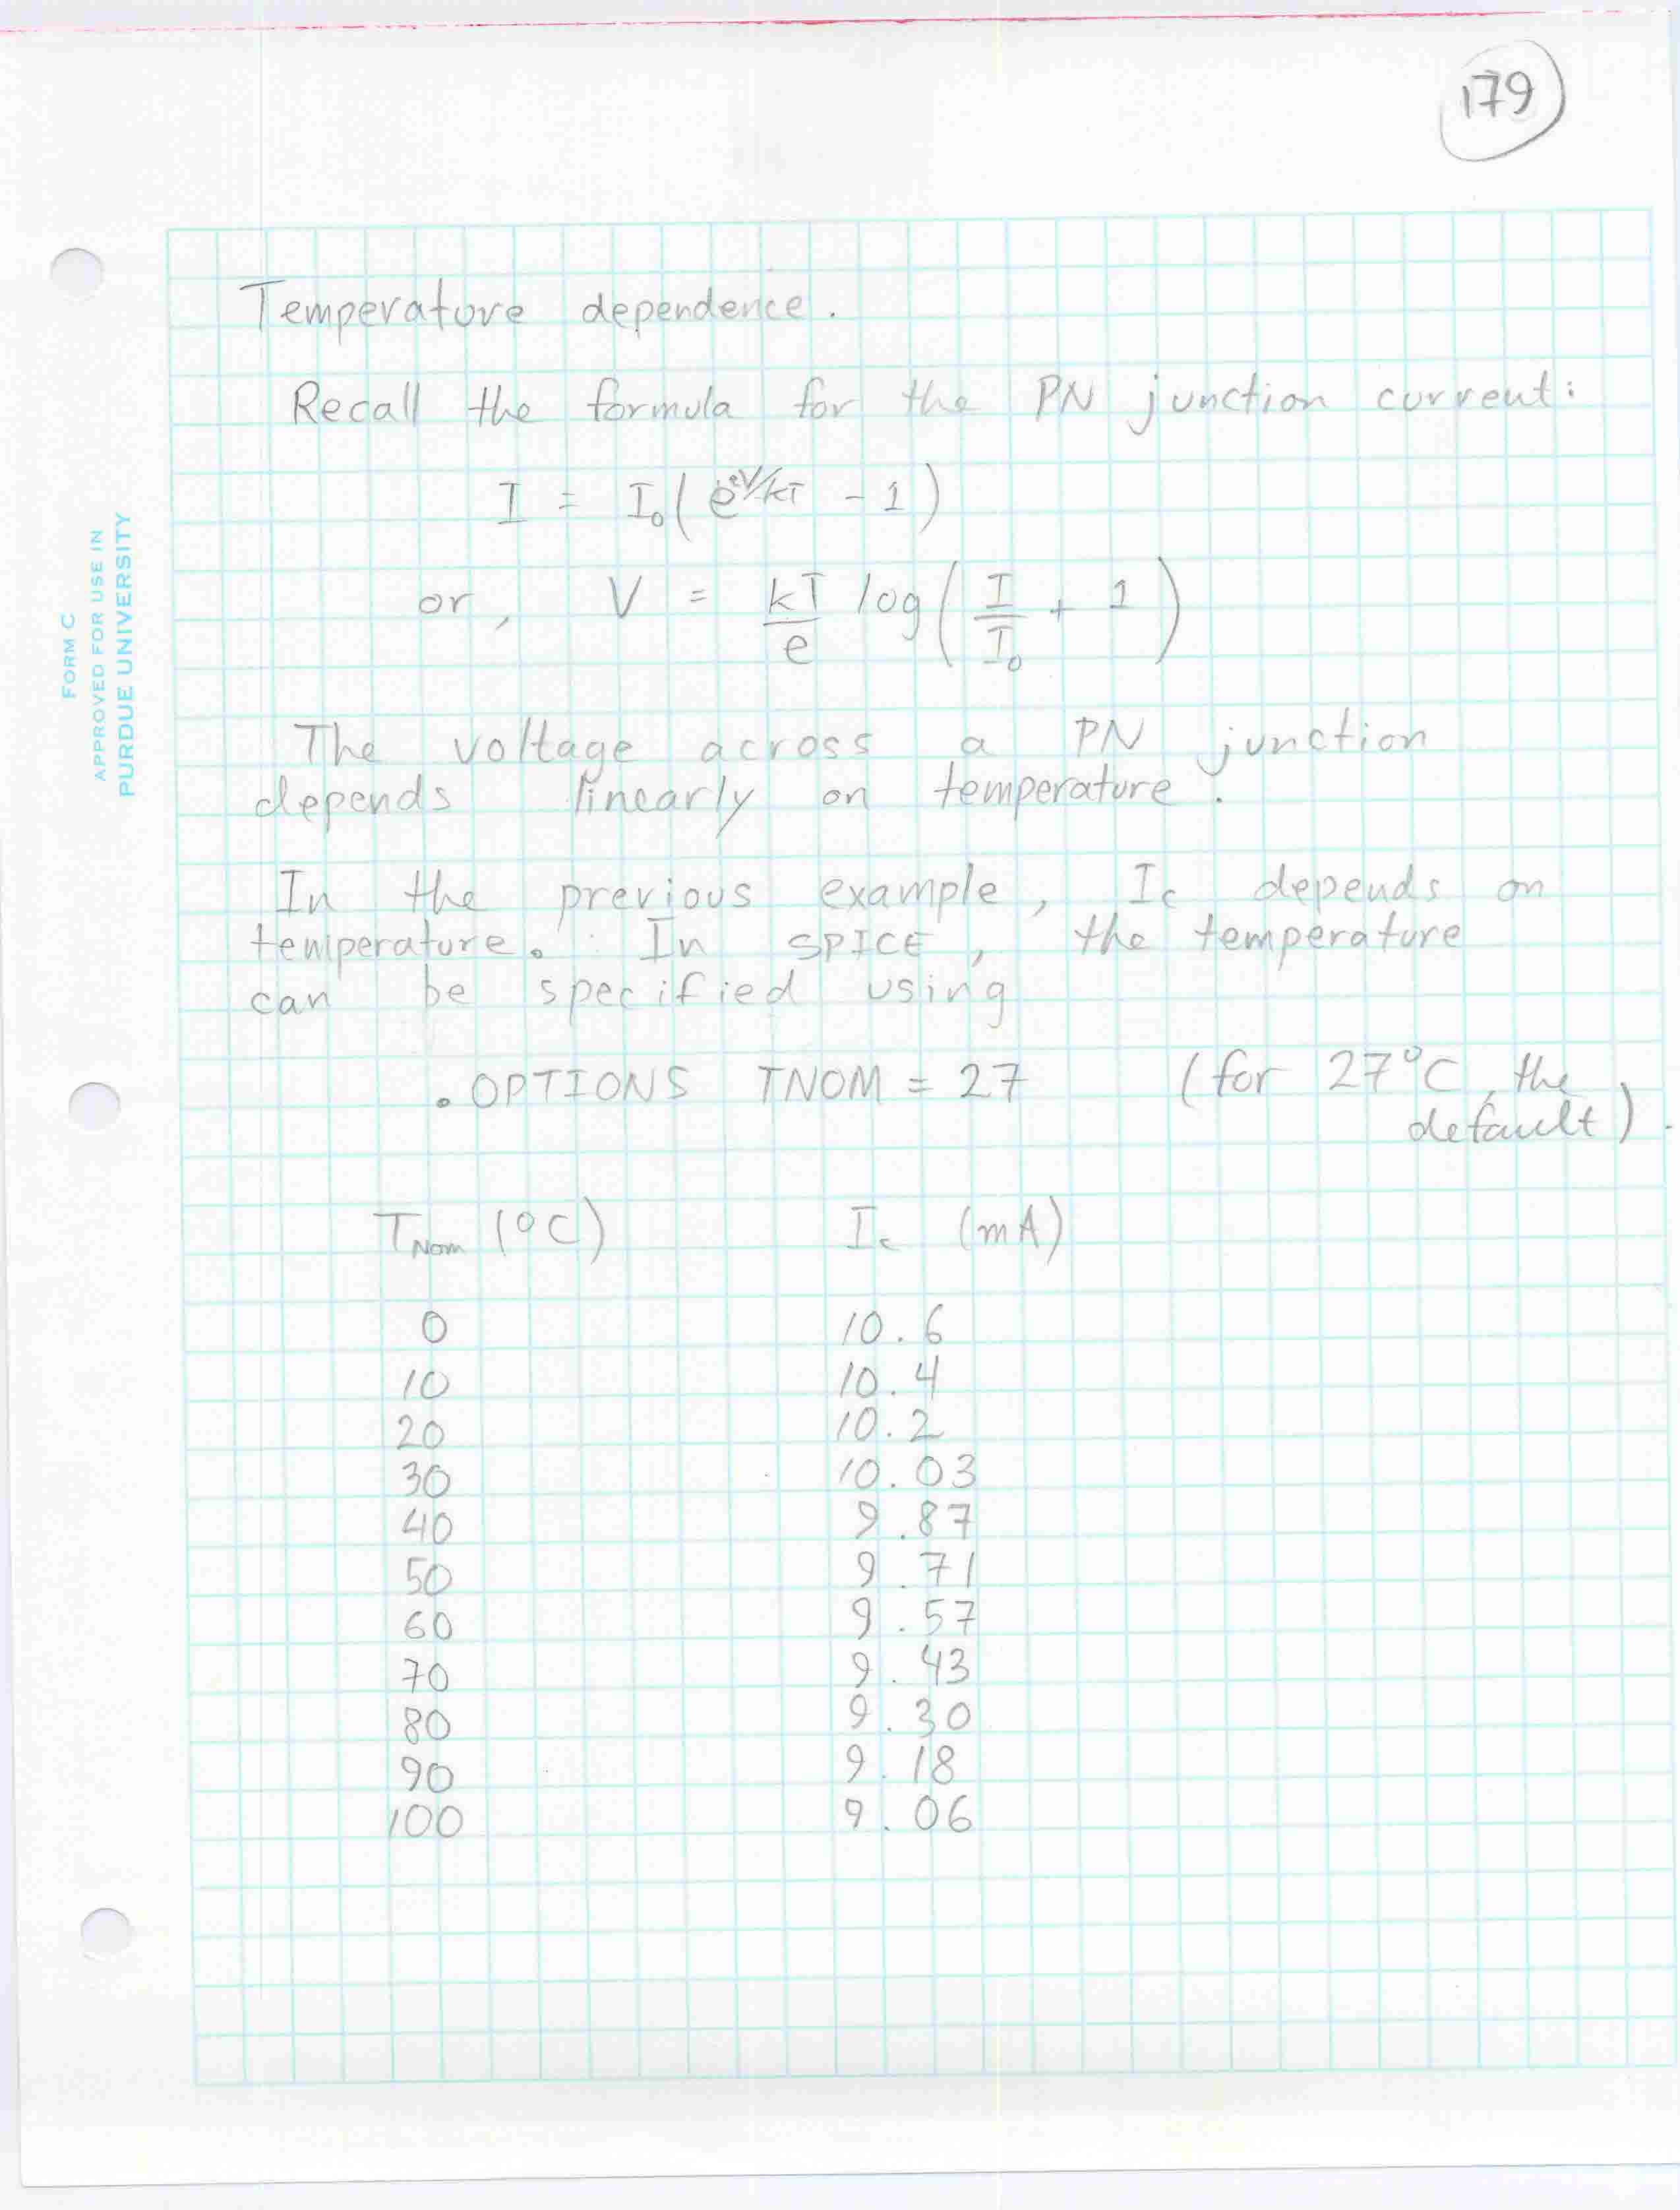 179
Temperature dependence.
Recall the formula for the PN junction current:
I = I₀(e^eV/kT - 1)
or, V = kT/e log(I/I₀ + 1)
The voltage across a PN junction
depends linearly on temperature.
In the previous example, Ic depends on
temperature. In SPICE, the temperature
can be specified using
.OPTIONS TNOM = 27 (for 27°C, the
default).
TNom (°C) Ic (mA)
0 10.6
10 10.4
20 10.2
30 10.03
40 9.87
50 9.71
60 9.57
70 9.43
80 9.30
90 9.18
100 9.06
FORM C
APPROVED FOR USE IN
PURDUE UNIVERSITY